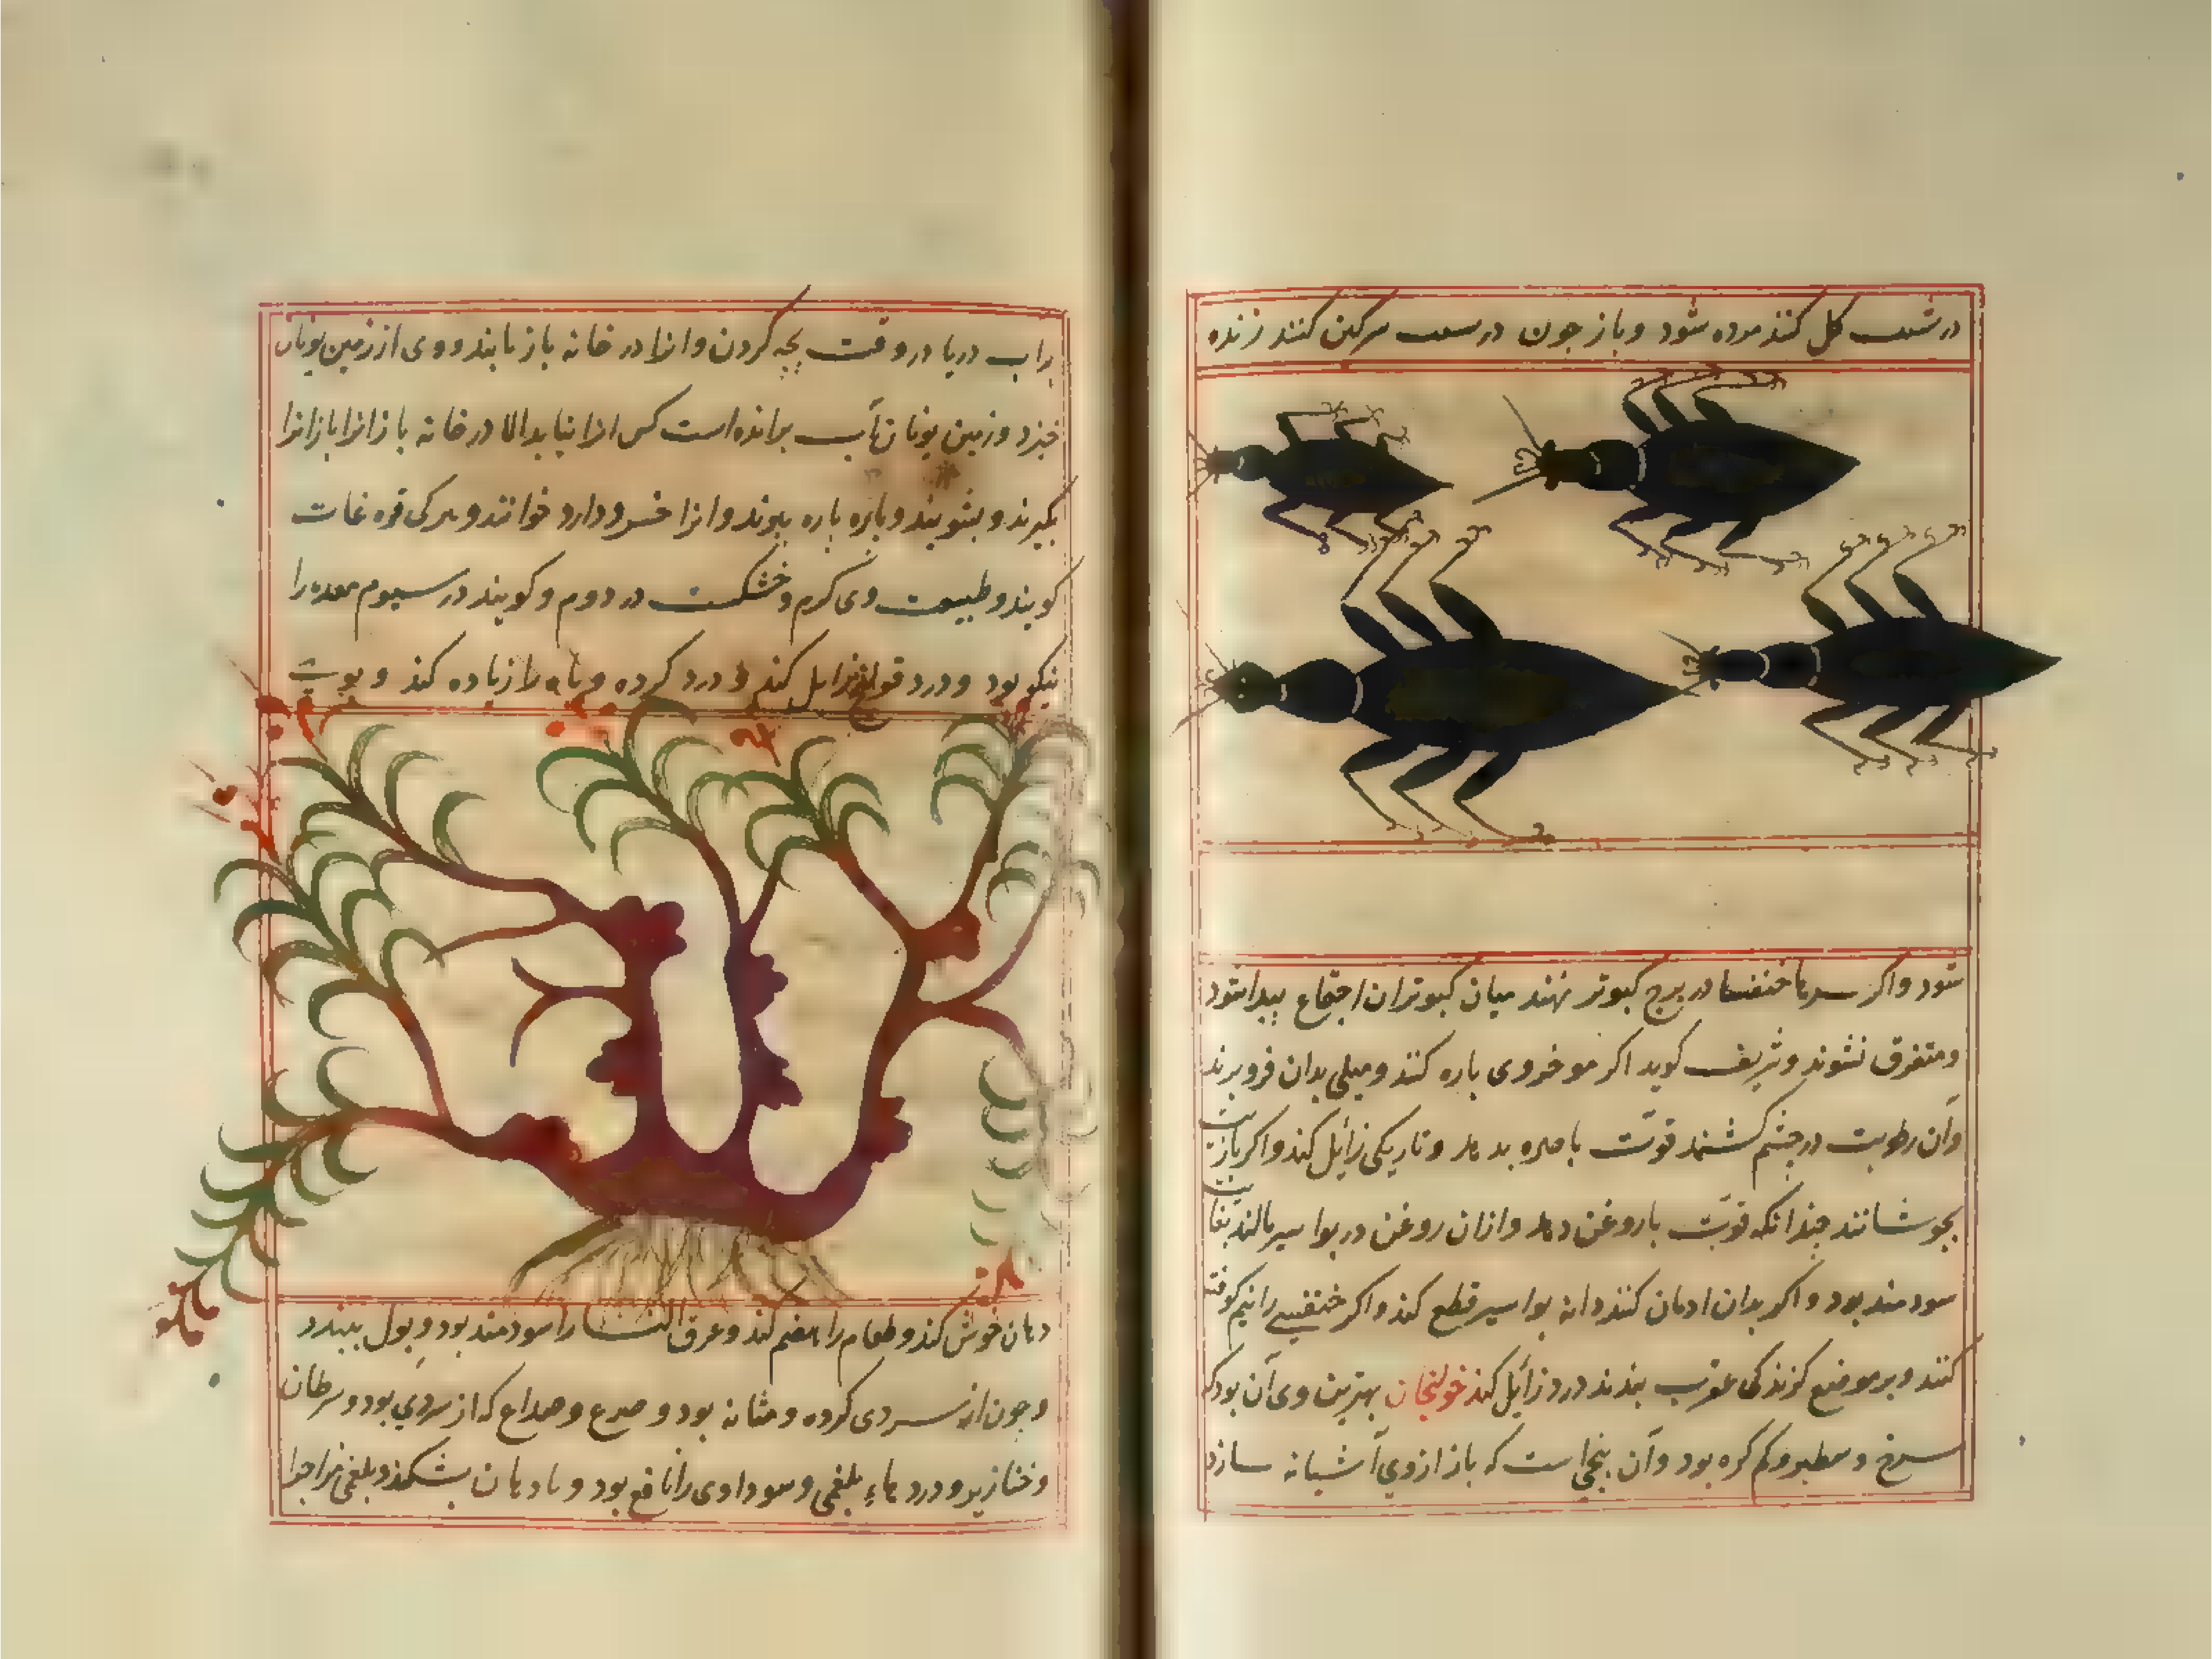 در شب کل کنند مرده شود و باز جون در سرکین کنند زنده
شود و اکر سرهاء خنفسا در برج کبوتر نهند میان کبوتران اجتماع پیدا شود
و متفرق نشوند و شریف کوید اکر موخر وی پاره کنند و میلی بدان فرو برند
و آن رطوبت در چشم کشند قوّت باصره بدهد و تاریکی زائل کند و اکر با زیت
بجوشانند چندانکه قوّت با روغن دهد و ازان روغن در بواسیر مالند بغایت
سودمند بود و اکر بدان ادمان کنند دانه بواسیر قطع کند و اکر خنفسی را نیم کوفته
کنند و بر موضع کزندکی عقرب بندند درد زائل کند خولنجان بهترین وی آن بود که
سرخ و سطبر و کم کره بود و آن بیخی است که باز ازوی آشیانه سازد
براب دریا در وقت بچه کردن و انرا در خانه باز یابند و وی از زمین یونان
خیزد و زمین یونان آب برانده است کس انرا نیابد الا در خانه باز انرا باز انرا
بکیرند و بشویند و پاره پاره ببرند و انرا خسرودارو خوانند و بترکی قره غات
کویند و طبیعت وی کرم و خشکست در دوم و کویند در سیوم معده را
نیکو بود و درد قولنج زایل کند و درد کرده و باه را زیاده کند و بوی
دهان خوش کند و طعام را هضم کند و عرق النسا را سودمند بود و بول ببندد
و جون از سردی کرده و مثانه بود و صرع و صداع که از سردی بود و سرطان
و خنازیر و دردهاء بلغمی و سوداوی را نافع بود و بادها بشکند و بلغمی مزاج را